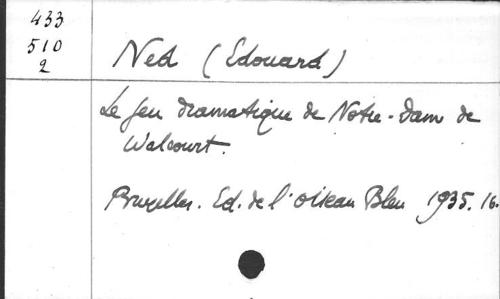 433
510
2
Ned (Edouard)
Le Jeu dramatique de Notre-Dame de
Walcourt.
Bruxelles. Ed. de l'Oiseau Bleu 1935. 16.